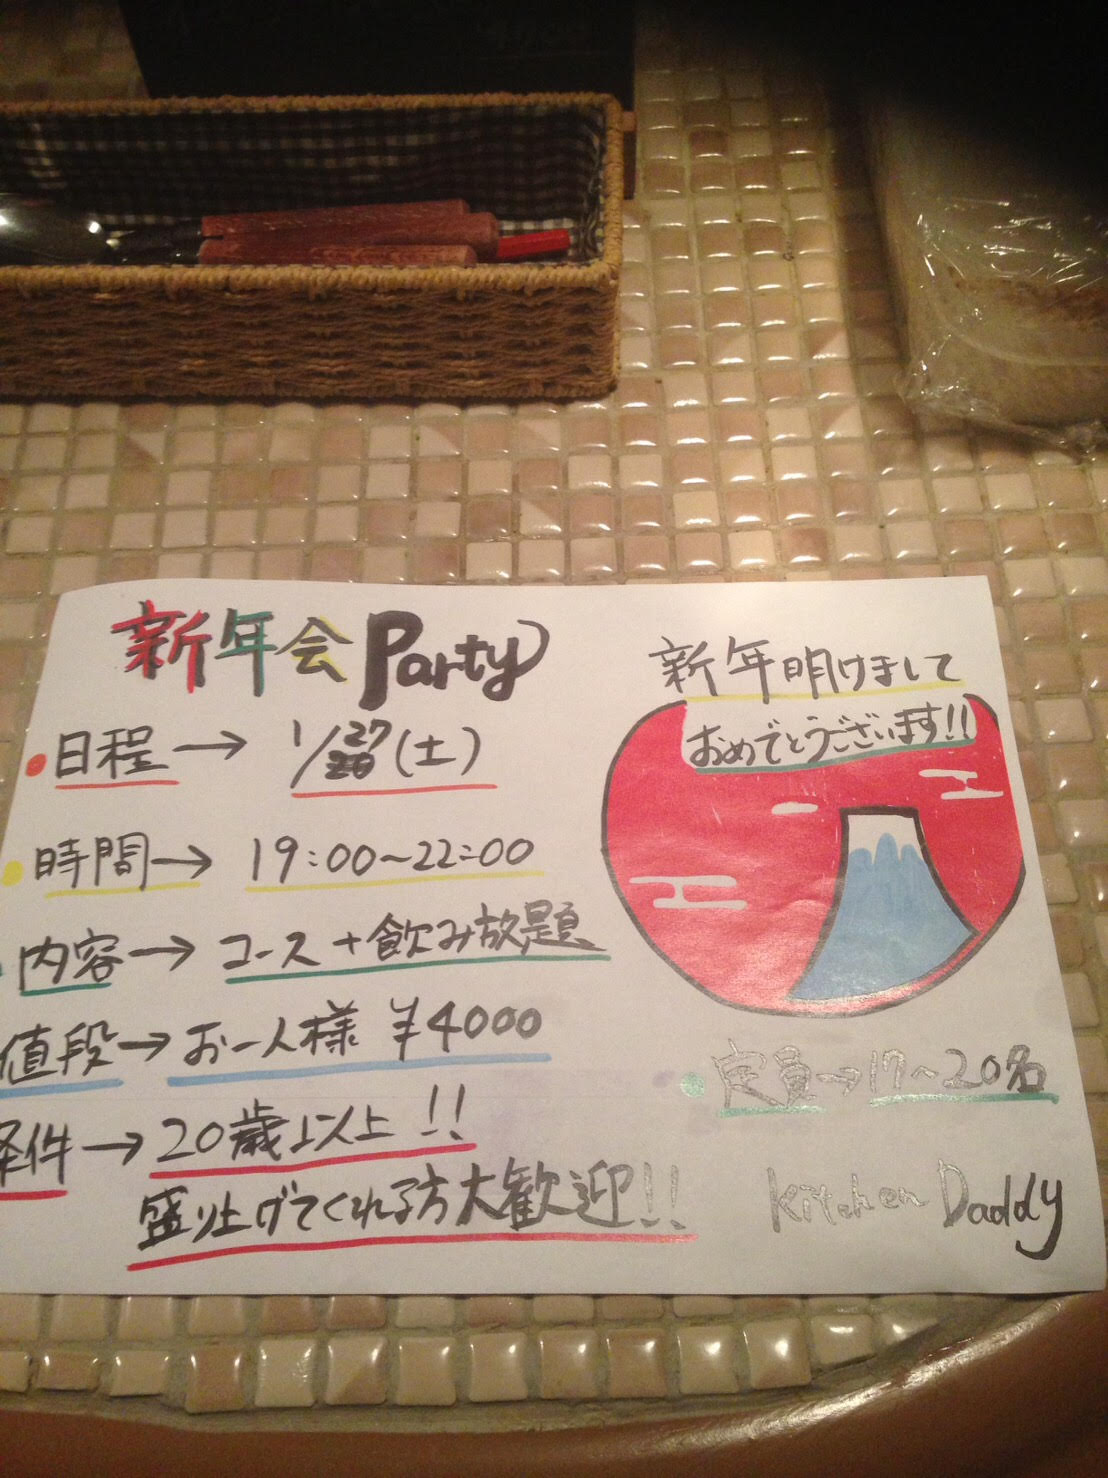 新年会 Party
日程→ 1/27(土)
時間→ 19:00~22:00
内容→ コース+飲み放題
値段→ お一人様 ¥4000
条件→ 20歳以上!!
盛り上げてくれる方大歓迎!!
新年明けまして
おめでとうございます!!
定量→17~20名
Kitchen Daddy